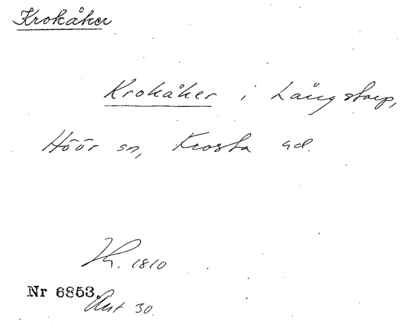 Krokåker
Krokåker i Långstorp,
Höör sn, Frosta hd.
Lh. 1810
Nr 6853.
Avt 30.